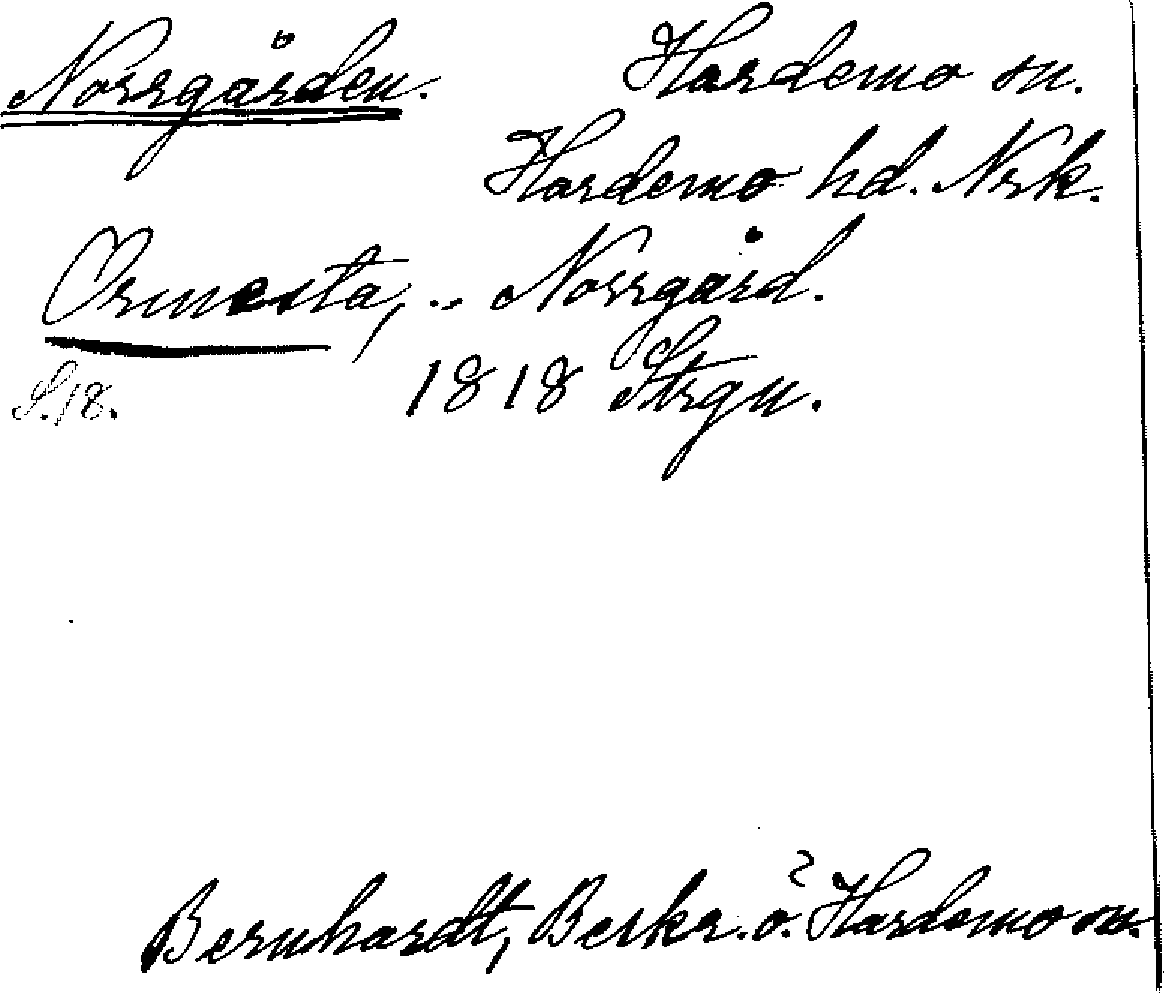 Norrgården. Hardemo sn.
Hardemo hd. Nrk.
Ormesta, .. Norrgård.
S. 18. 1818 Strgn.
Bernhardt, Beskr. ö. Hardemo sn.